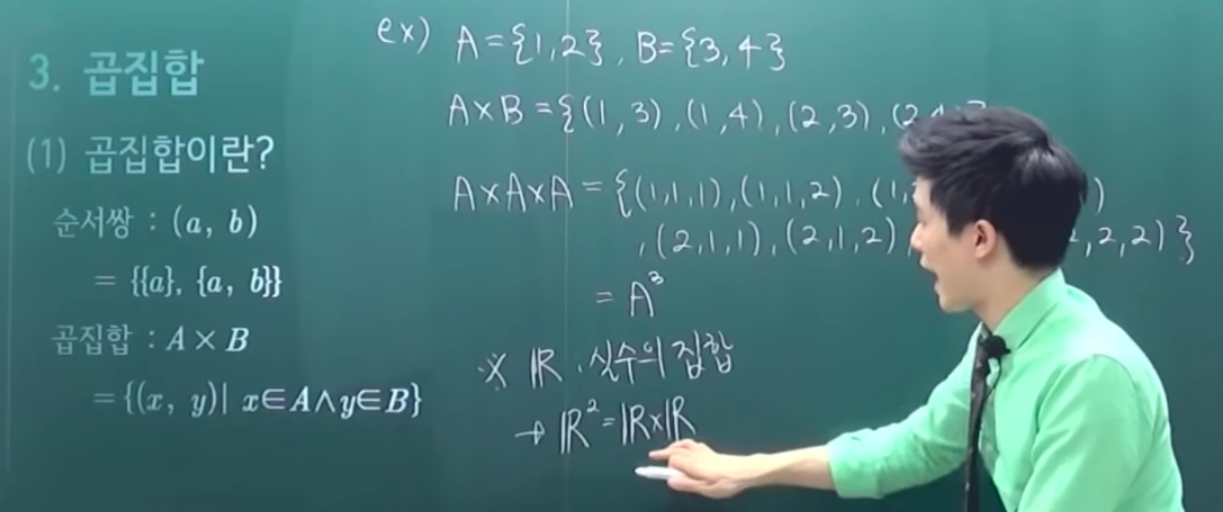 3. 곱집합
(1) 곱집합이란?
순서쌍 : (a, b)
= {{a}, {a, b}}
곱집합 : A × B
= {(x, y)| x∈A∧y∈B}
ex) A={1,2}, B={3,4}
A×B={(1,3),(1,4),(2,3),(2
A×A×A={(1,1,1),(1,1,2),(1,
,(2,1,1),(2,1,2) ,2,2)}
= A³
※ ℝ : 실수의 집합
→ ℝ²=ℝ×ℝ